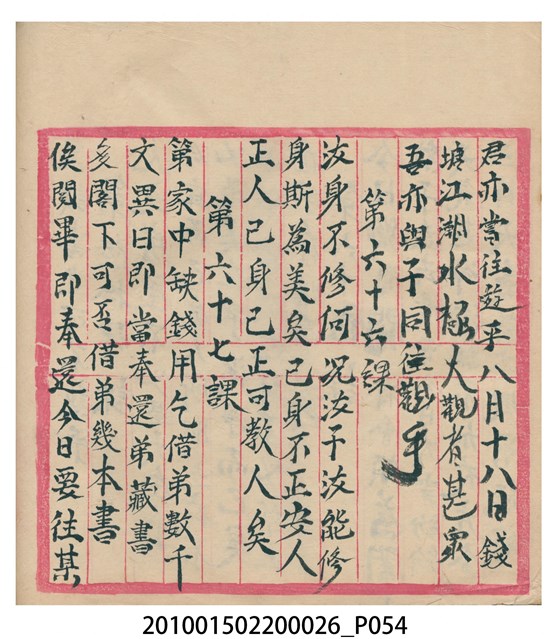 君亦嘗往遊乎八月十八日錢
塘江潮水極大觀者甚衆
吾亦與子同往觀乎
第六十六課
汝身不修何況汝干汝能修
身斯為美矣己身不正安人
正人己身己正可教人矣
第六十七課
第家中缺錢用乞借弟數千
文異日即當奉還弟藏書
多閣下可否借弟幾本書
俟閱畢即奉還今日要往某
201001502200026_P054